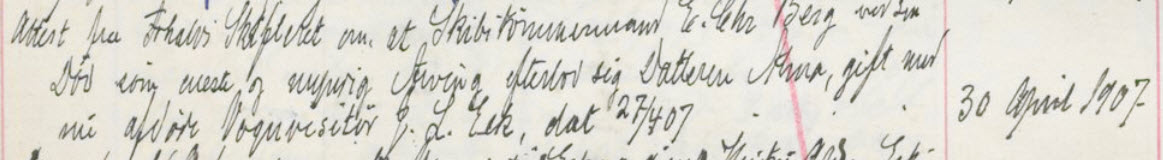 Attest fra Trhalvs Skifteret om, at Skibstømmermand E. Chr Berg ved sin
Død som eneste og myndig Arving efterlod sig Datteren Anna, gift med
nu afdøde Vognvisitør J. L. Eek, dat 27/4 07
30 April 1907